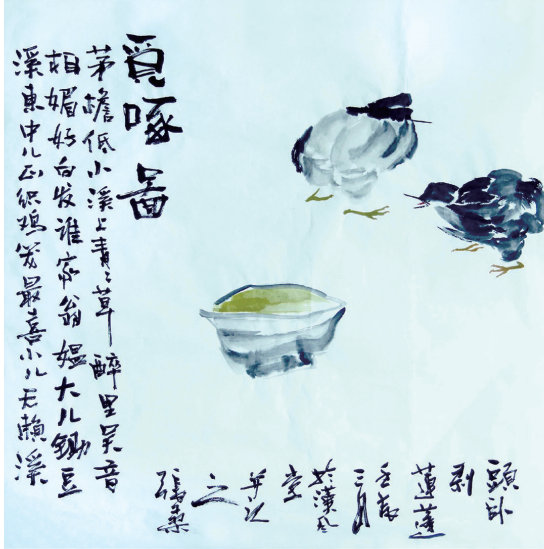 覓啄啚
茅檐低小溪上青〻草醉里吴音
相媚好白发谁家翁媪大儿锄豆
溪東中儿正织鸡笼最喜小儿无賴溪
頭卧
剥
蓮蓬
壬
三月
於漢風
堂
并记
之
張桑